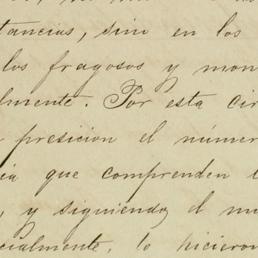 tancias, sino en los
los fragosos y mon
lmente. Por esta cir
presicion el númer
que comprenden
y siguiendo el m
cialmente, lo hicieron